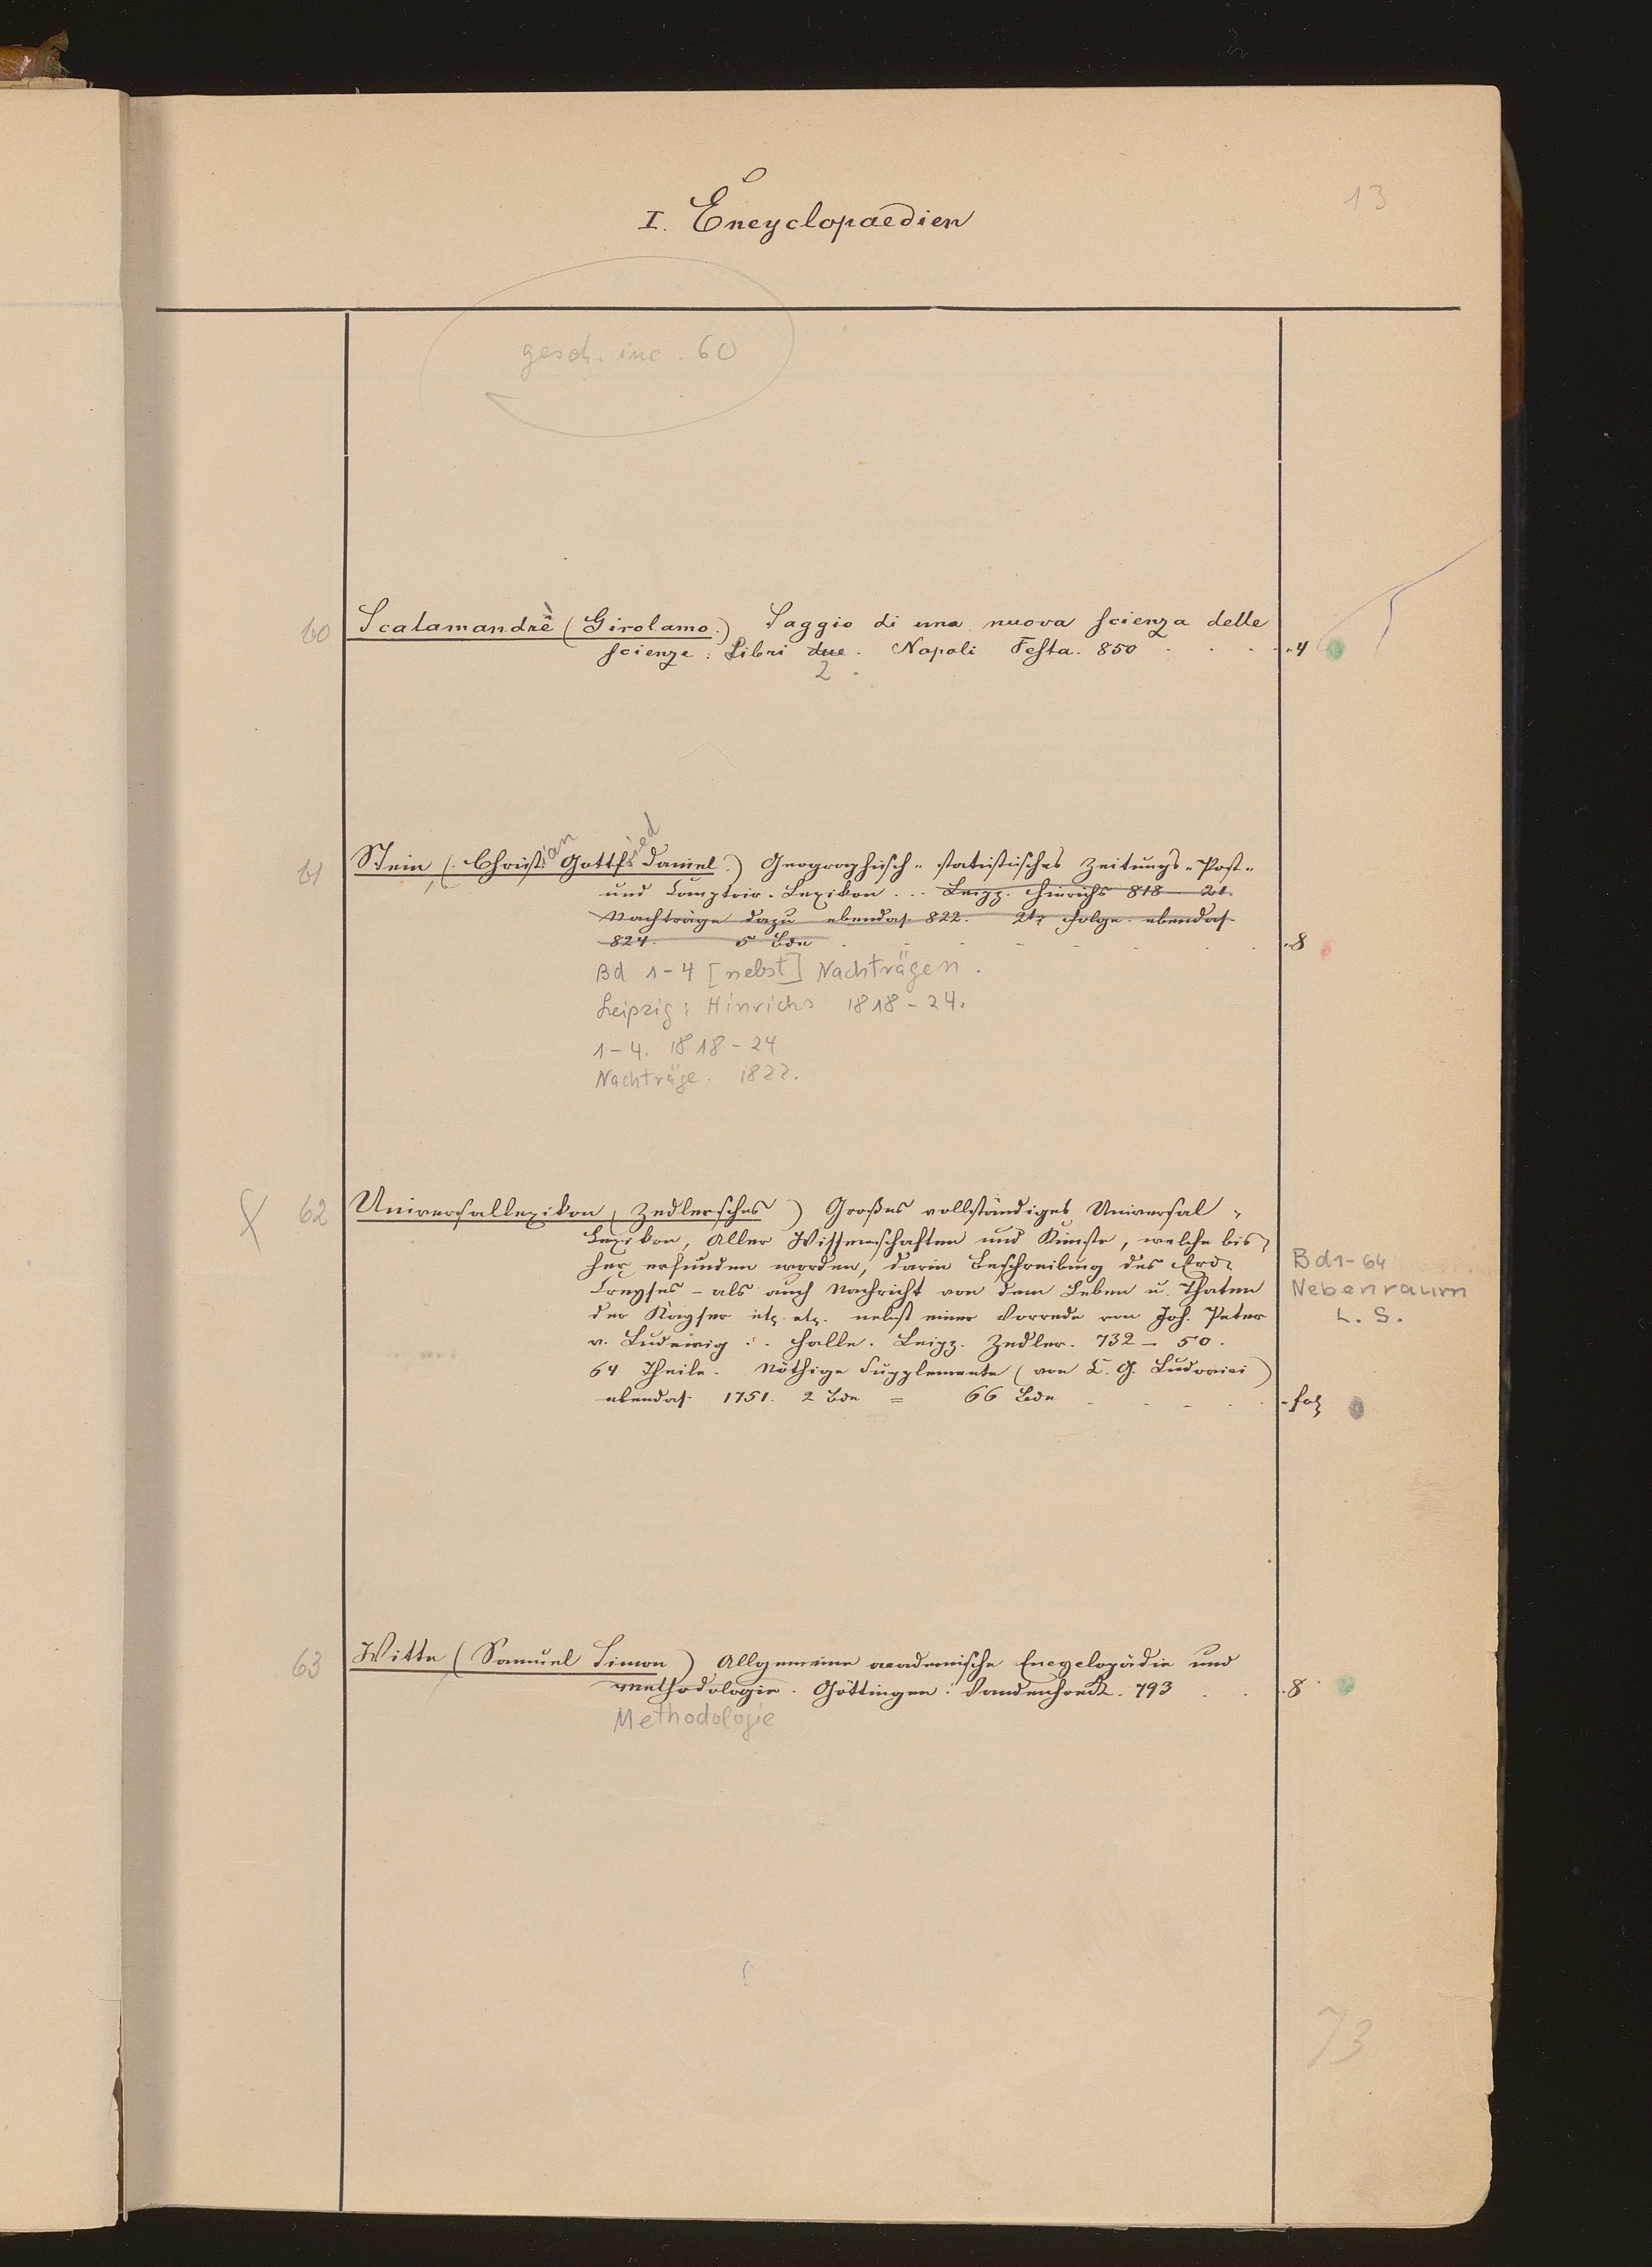 13
I. Encyclopaedien
gesch. inc. 60
60 Scalamandrè (Girolamo.) Saggio di una nuova scienza delle
scienze: Libri due. Napoli Festa. 850 . . . . 4
2
61 Stein (Christian Gottfried Daniel.) Geographisch-statistisches Zeitungs-Post-
und Comptoir-Lexikon ... Leipz. Hinrichs 818-21.
Nachträge dazu ebendas. 822. 2te Folge ebendas.
824. 5 Bde . . . . . . 8
Bd 1-4 [nebst] Nachträgen.
Leipzig: Hinrichs 1818-24.
1-4. 1818-24
Nachträge. 1822.
62 Universallexikon (Zedlersches) Großes vollständiges Universal-
Lexikon, Aller Wissenschaften und Künste, welche bis-
her erfunden worden, darin Beschreibung des Erd-
Creyses - als auch Nachricht von dem Leben u. Thaten
der Kayser etc. etc. nebst einer Vorrede von Joh. Peter
v. Ludewig :. Halle. Leipz. Zedler. 732-50.
64 Theile. Nöthige Supplemente (von C. G. Ludovici)
ebendas. 1751. 2 Bde = 66 Bde . . . . fol
Bd 1-64
Nebenraum
L. S.
63 Witte (Samuel Simon) Allgemeine academische Encyclopädie und
Methodologie. Göttingen: Vandenhoeck. 793 . . . 8
Methodologie
73